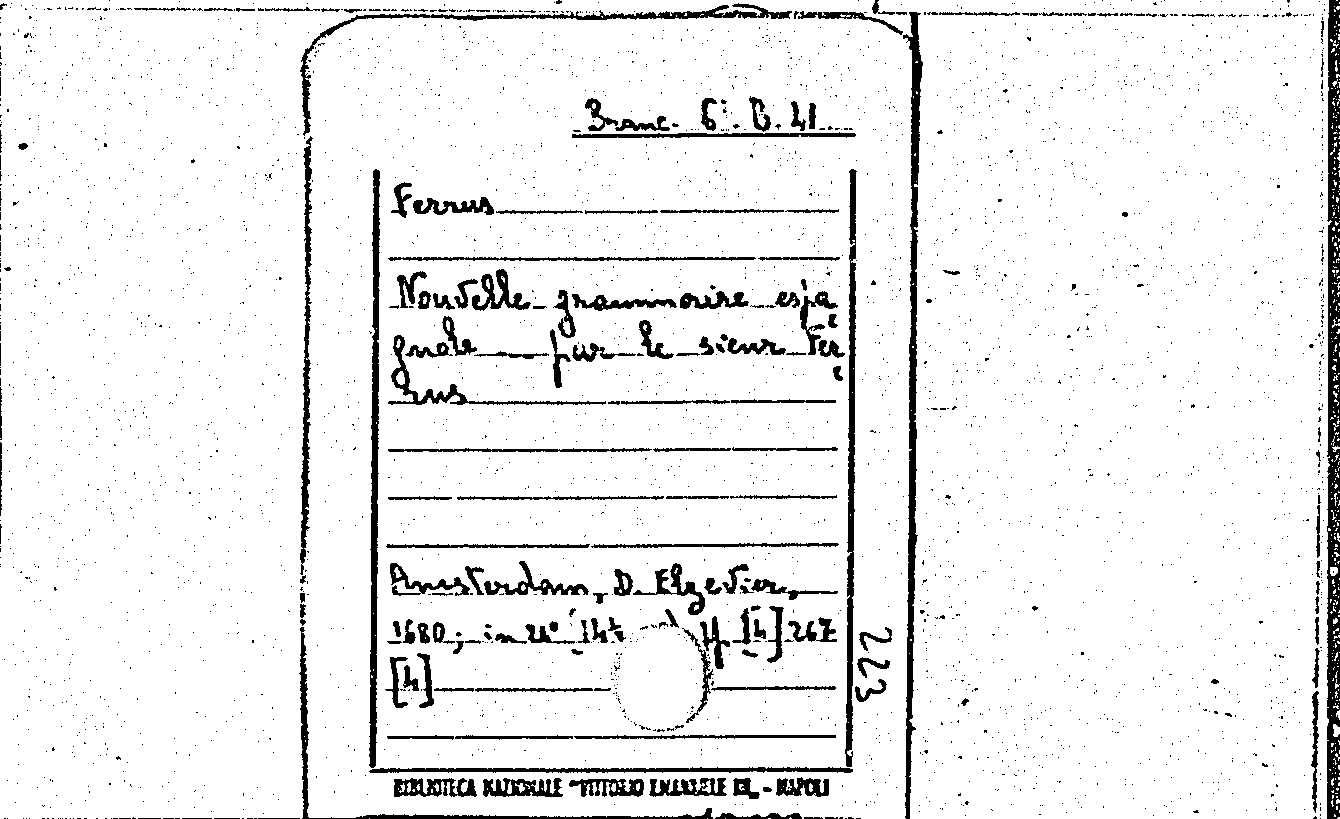 Branc. 6. B. 41
Ferrus
Nouvelle grammaire espa
gnole par le sieur Fer
rus
Amsterdam, D. Elzevier,
1680; in 24° pp [4] 267
[4]
223
BIBLIOTECA NAZIONALE "VITTORIO EMANUELE III" - NAPOLI